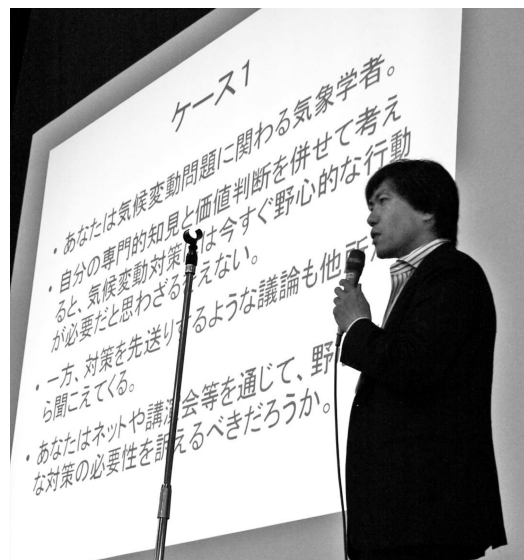 ケース1
・あなたは気候変動問題に関わる気象学者。
・自分の専門的知見と価値判断を併せて考え
ると、気候変動対策は今すぐ野心的な行動
が必要だと思わざるえない。
・一方、対策を先送りするような議論も他所
ら聞こえてくる。
・あなたはネットや講演会等を通じて、野
な対策の必要性を訴えるべきだろうか。